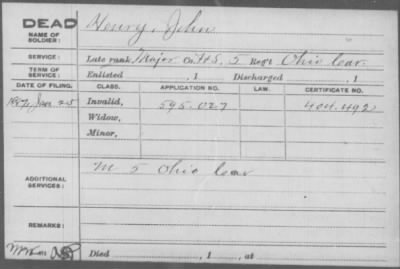 DEAD Henry, John
NAME OF
SOLDIER:
SERVICE: Late rank Major Co. F&S, 5 Reg't Ohio Cav.
TERM OF
SERVICE: Enlisted , 1 Discharged , 1
DATE OF FILING. CLASS. APPLICATION NO. LAW. CERTIFICATE NO.
Jan 25 Invalid, 595.027 404.492
Widow,
Minor,
ADDITIONAL
SERVICES: M 5 Ohio Cav
REMARKS:
Died , 1 , at